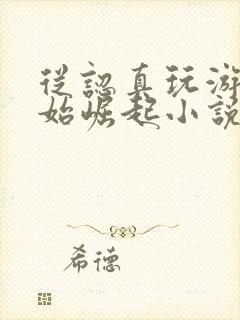 從認真玩游
始崛起小説
希德